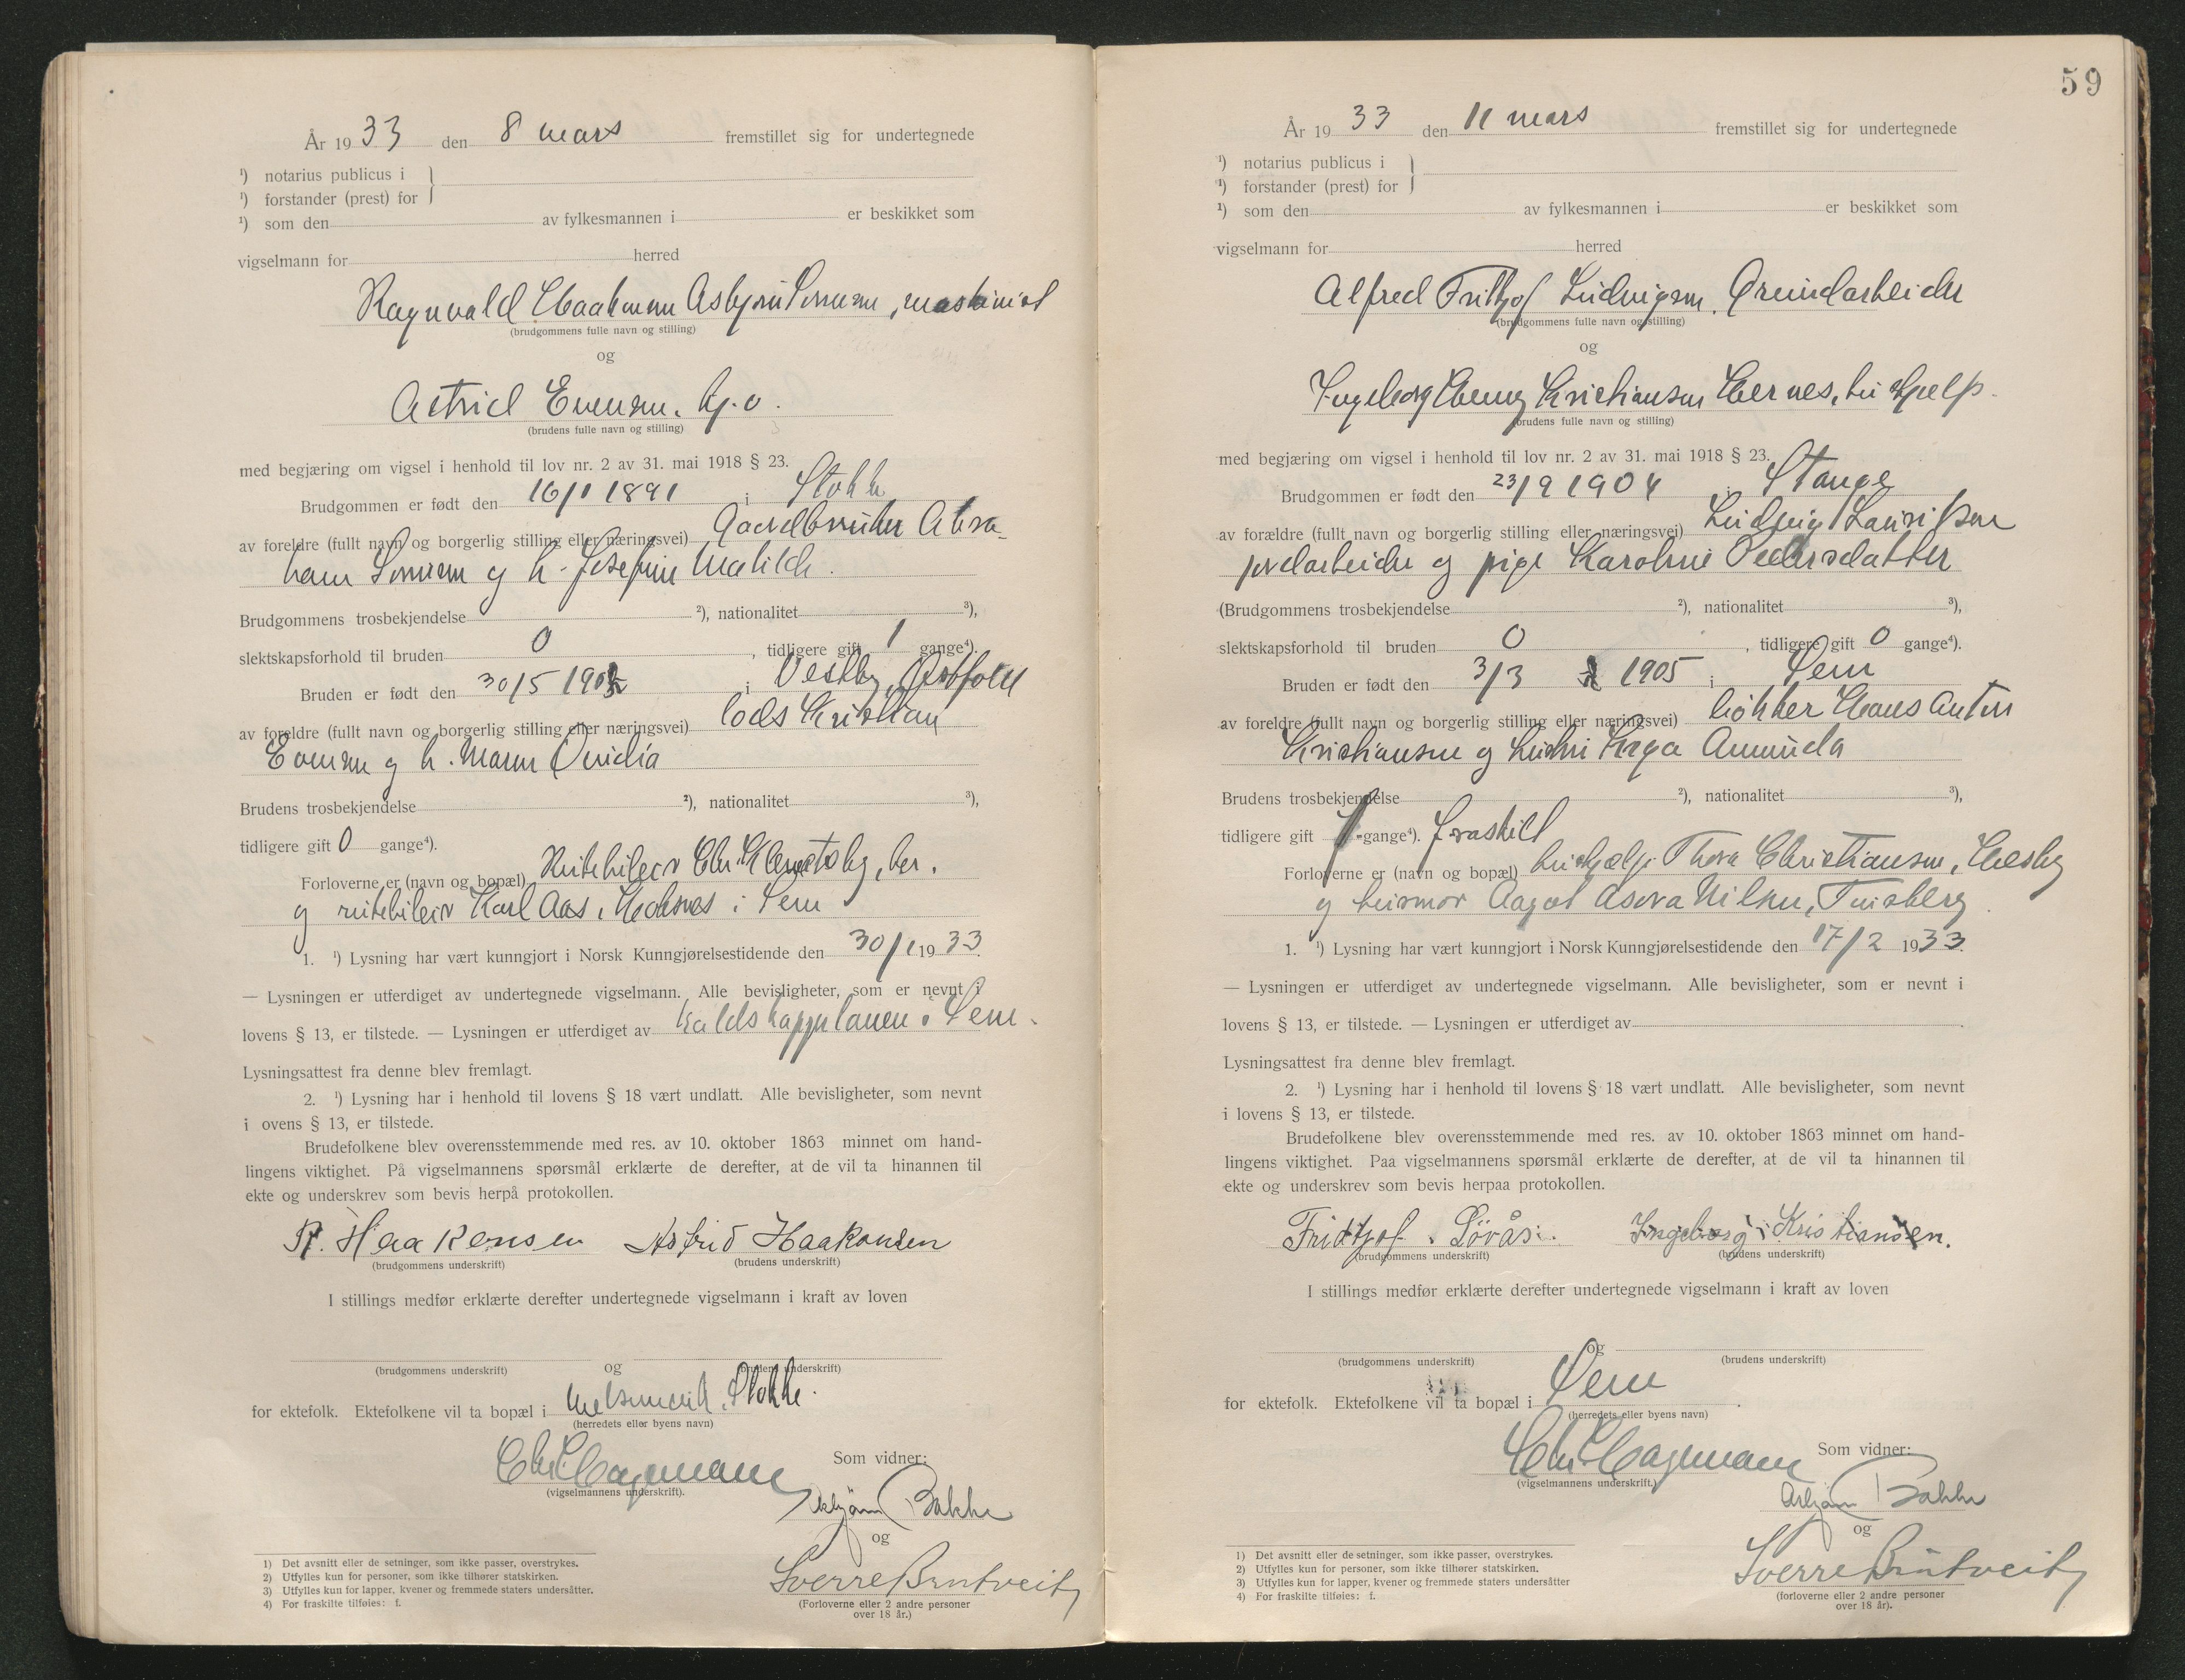 År 1933 den 8 mars fremstillet sig for undertegnede
¹) notarius publicus i
¹) forstander (prest) for
¹) som den av fylkesmannen i er beskikket som
vigselmann for herred
Ragnvald Haakonsen Asbjørn , maskinist
(brudgommens fulle navn og stilling)
og
Astrid Evensen, hj.v.
(brudens fulle navn og stilling)
med begjæring om vigsel i henhold til lov nr. 2 av 31. mai 1918 § 23.
Brudgommen er født den 16/1 1891 i Stokke
av foreldre (fullt navn og borgerlig stilling eller næringsvei) Gaardbruker Abra-
ham og h. Josefine Matilde.
Brudgommens trosbekjendelse ²), nationalitet ³),
slektskapsforhold til bruden 0, tidligere gift 1 gange⁴).
Bruden er født den 30/5 190 i Vestby, Østfold
av foreldre (fullt navn og borgerlig stilling eller næringsvei) Lods Kristian
Evensen og h. Maren Ovidia
Brudens trosbekjendelse ²), nationalitet ³),
tidligere gift 0 gange⁴).
Forloverne er (navn og bopæl) Rutebileier Chr. , her.
og rutebileier Karl Aas, i Sem
1. ¹) Lysning har vært kunngjort i Norsk Kunngjørelsestidende den 30/1 1933.
— Lysningen er utferdiget av undertegnede vigselmann. Alle bevisligheter, som er nevnt i
lovens § 13, er tilstede. — Lysningen er utferdiget av kaldskappelanen i Sem.
Lysningsattest fra denne blev fremlagt.
2. ¹) Lysning har i henhold til lovens § 18 vært undlatt. Alle bevisligheter, som nevnt
i ovens § 13, er tilstede.
Brudefolkene blev overensstemmende med res. av 10. oktober 1863 minnet om hand-
lingens viktighet. På vigselmannens spørsmål erklærte de derefter, at de vil ta hinannen til
ekte og underskrev som bevis herpå protokollen.
R. Haakonsen Astrid Haakonsen
(brudgommens underskrift) (brudens underskrift)
I stillings medfør erklærte derefter undertegnede vigselmann i kraft av loven
og
(brudgommens underskrift) (brudens underskrift)
for ektefolk. Ektefolkene vil ta bopæl i Melsomvik, Stokke.
(herredets eller byens navn)
Chr. Hagemann
(vigselmannens underskrift).
Som vidner:
Asbjørn Bakke
og
Sverre Bruntveit
(Forloverne eller 2 andre personer
over 18 år.)
1) Det avsnitt eller de setninger, som ikke passer, overstrykes.
2) Utfylles kun for personer, som ikke tilhører statskirken.
3) Utfylles kun for lapper, kvener og fremmede staters undersåtter.
4) For fraskilte tilføies: f.
59
År 1933 den 11 mars fremstillet sig for undertegnede
¹) notarius publicus i
¹) forstander (prest) for
¹) som den av fylkesmannen i er beskikket som
vigselmann for herred
Alfred Frithjof Ludvigsen, Grundarbeider
(brudgommens fulle navn og stilling)
og
Ingeborg Henny Kristiansen Hernes, hushjelp.
(brudens fulle navn og stilling)
med begjæring om vigsel i henhold til lov nr. 2 av 31. mai 1918 § 23.
Brudgommen er født den 23/9 1904 i Stange
av forældre (fullt navn og borgerlig stilling eller næringsvei) Ludvig Lauritsen
jordarbeider og pige Karoline Pedersdatter
(Brudgommens trosbekjendelse ²), nationalitet ³),
slektskapsforhold til bruden 0, tidligere gift 0 gange⁴).
Bruden er født den 3/3 1905 i Sem
av foreldre (fullt navn og borgerlig stilling eller næringsvei) Hans Anton
Kristiansen og hustru Amunda
Brudens trosbekjendelse ²), nationalitet ³),
tidligere gift 1 gange⁴). fraskilt
Forloverne er (navn og bopæl) hushjelp Thora Christiansen, Husby
og husmor Aagot Asora Nilsen, Tønsberg.
1. ¹) Lysning har vært kunngjort i Norsk Kunngjørelsestidende den 17/2 1933.
— Lysningen er utferdiget av undertegnede vigselmann. Alle bevisligheter, som er nevnt i
lovens § 13, er tilstede. — Lysningen er utferdiget av .
Lysningsattest fra denne blev fremlagt.
2. ¹) Lysning har i henhold til lovens § 18 vært undlatt. Alle bevisligheter, som nevnt
i lovens § 13, er tilstede.
Brudefolkene blev overensstemmende med res. av 10. oktober 1863 minnet om hand-
lingens viktighet. Paa vigselmannens spørsmål erklærte de derefter, at de vil ta hinannen til
ekte og underskrev som bevis herpaa protokollen.
Fridtjof Løvås. Ingeborg Kristiansen.
(brudgommens underskrift) (brudens underskrift)
I stillings medfør erklærte derefter undertegnede vigselmann i kraft av loven
og
(brudgommens underskrift) (brudens underskrift)
for ektefolk. Ektefolkene vil ta bopæl i Sem.
(herredets eller byens navn)
Chr. Hagemann
(vigselmannens underskrift.)
Som vidner:
Asbjørn Bakke
og
Sverre Bruntveit
(forloverne eller 2 andre personer
over 18 år).
1) Det avsnitt eller de setninger, som ikke passer, overstrykes.
2) Utfylles kun for personer, som ikke tilhører statskirken.
3) Utfylles kun for lapper, kvener og fremmede staters undersåtter
4) For fraskilte tilføies: f.